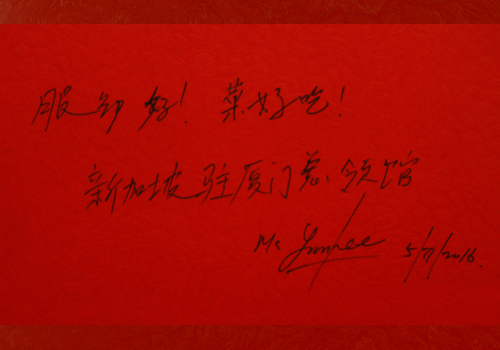 服务好！菜好吃！
新加坡驻厦门总领馆
Ms
5/7/2016.